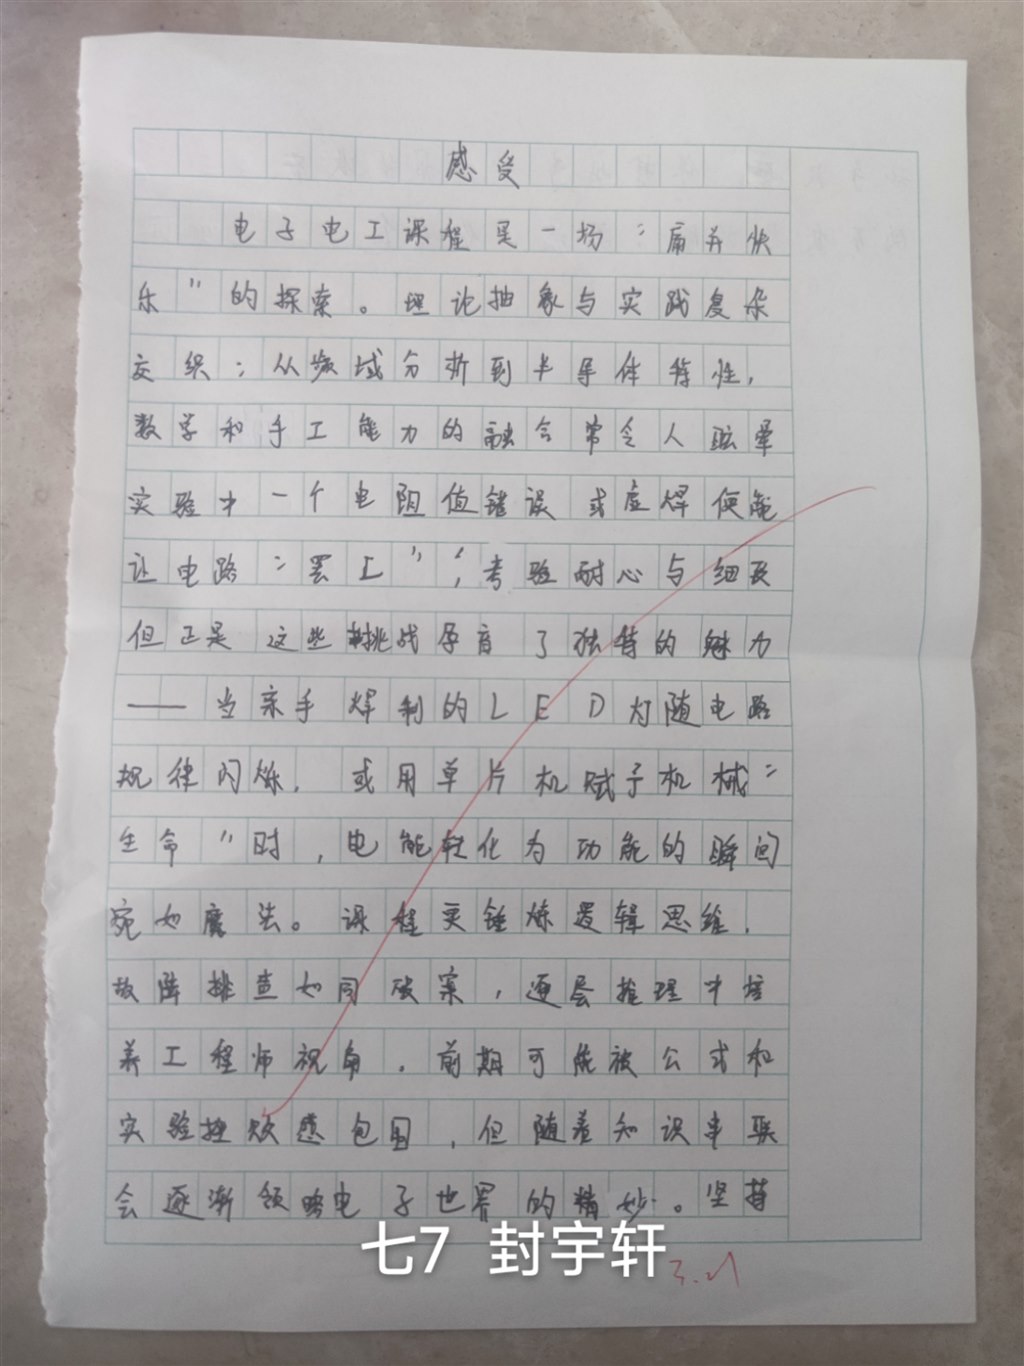 感受
电子电工课程是一场“痛并快
乐”的探索。理论抽象与实践复杂
交织：从频域分析到半导体特性，
数学和手工能力的融合常令人眩晕
实验中一个电阻值错误或虚焊便能
让电路“罢工”，考验耐心与细致
但正是这些挑战孕育了独特的魅力
——当亲手焊制的LED灯随电路
规律闪烁，或用单片机赋予机械“
生命”时，电能转化为功能的瞬间
宛如魔法。课程更锤炼逻辑思维，
故障排查如同破案，逐层推理中培
养工程师视角。前期可能被公式和
实验挫败感包围，但随着知识串联
会逐渐领略电子世界的精妙。坚持
七7 封宇轩
3.21